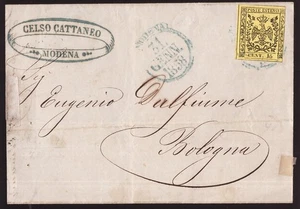 CELSO CATTANEO
MODENA
POSTE ESTENSI
CENT. 15
Eugenio Dalfiume
Bologna